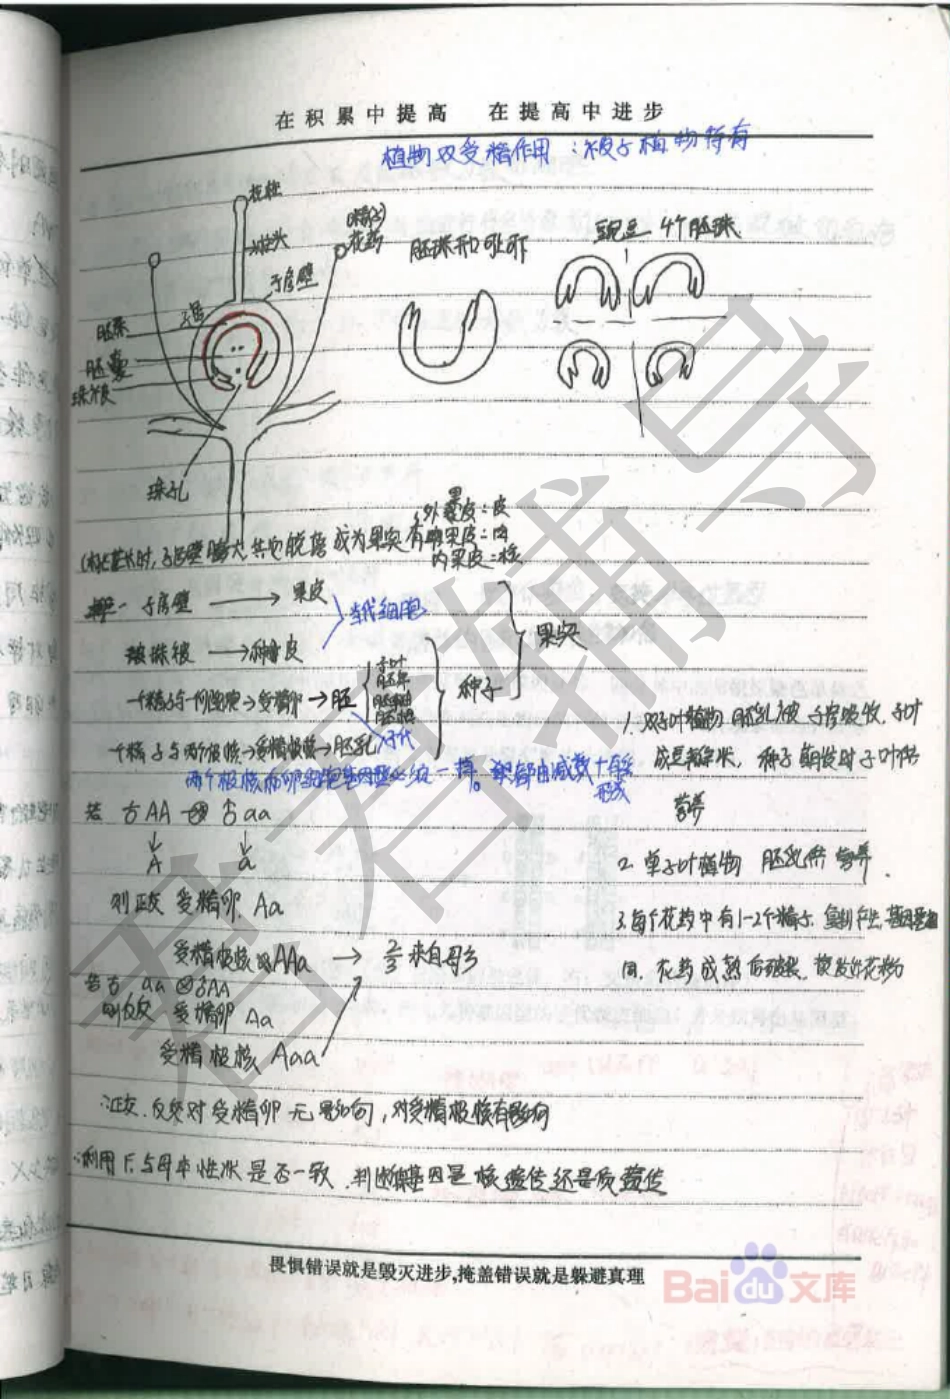 在积累中提高 在提高中进步
植物双受精作用：被子植物特有
花柱
柱头
(精子)
花药
子房壁
子房
胚珠
胚囊
珠被
珠孔
胚珠
豌豆 4个胚珠
外果皮：皮
子房壁膨大 其它脱落 成为果实 有 中果皮：肉
内果皮：核
子房壁 → 果皮
珠被 → 种皮
当代细胞
果实
一个精子与一个卵细胞→受精卵→胚
子叶
胚芽
胚轴
胚根
种子
一个精子与两个极核→受精极核→胚乳
子代
两个极核和卵细胞基因型必须一样，都由减数
形成
1. 双子叶植物 胚乳被子房吸收，子叶
种子萌发时子叶供
营养
2. 单子叶植物 胚乳供营养
3. 每个花药中有1-2个精子
同. 花药成熟后破裂，散发出花粉
若 ♀AA ⊗ ♂aa
A a
则正交 受精卵 Aa
受精极核 AAa → 2/3 来自母方
若♀ aa ⊗ ♂AA
则反交 受精卵 Aa
受精极核 Aaa
∴正交、反交对受精卵无影响，对受精极核有影响
∴利用F₁与母本性状是否一致，判断基因是核遗传还是质遗传
畏惧错误就是毁灭进步,掩盖错误就是躲避真理
Bai du 文库
君君辅导